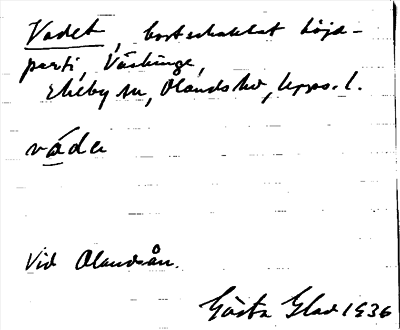 Vadet, bortschaktat höjd-
parti, Västinge,
Ekeby sn, Ølands hd, Upps. l.
váde
Vid Olandsån.
Gösta Glad 1936